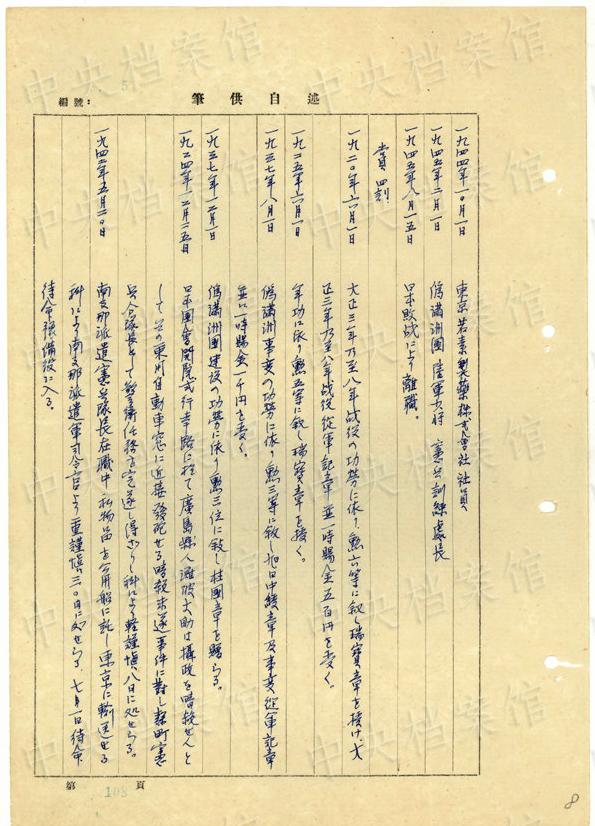 編號：
述自供筆
一九四四年一〇月一日　東京若素製薬株式會社社員
一九四五年二月一日　偽満洲國陸軍少將　憲兵訓練處長
一九四五年八月一五日　日本敗戦により離職。
賞四罰
一九二〇年六月一日　大正三年乃至八年戦役の功労に依り、勲六等に叙し瑞寶章を授け、大
正三年乃至八年戦役従軍記章並一時賜金五百円を受く。
一九二五年六月一日　年功に依り勲五等に叙し瑞寶章を授く。
一九三七年八月一日　偽満洲事変の功労に依り勲三等に叙し旭日中綬章及事変従軍記章
並に一時賜金一千円を受く。
一九三七年一二月一日　偽満洲國建設の功労に依り勲三位に叙し柱國章を賜らる。
一九二四年一二月二五日　日本國會開院式行幸路に於て廣島縣人難波大助は攝政を暗殺せんと
して其の乗用自動車窓に近接發砲せる暗殺未遂事件に對し麹町憲
兵分隊長として警衛任務を完遂し得ざりし科により軽謹慎八日に処せらる。
一九四二年五月二〇日　南支那派遣憲兵隊長在職中、私物品を公用船に託し東京に輸送せる
科により南支那派遣軍司令官より重謹慎三〇日に処せらる、七月一日待命、
待命後予備役に入る。
第108頁
8
中央档案馆